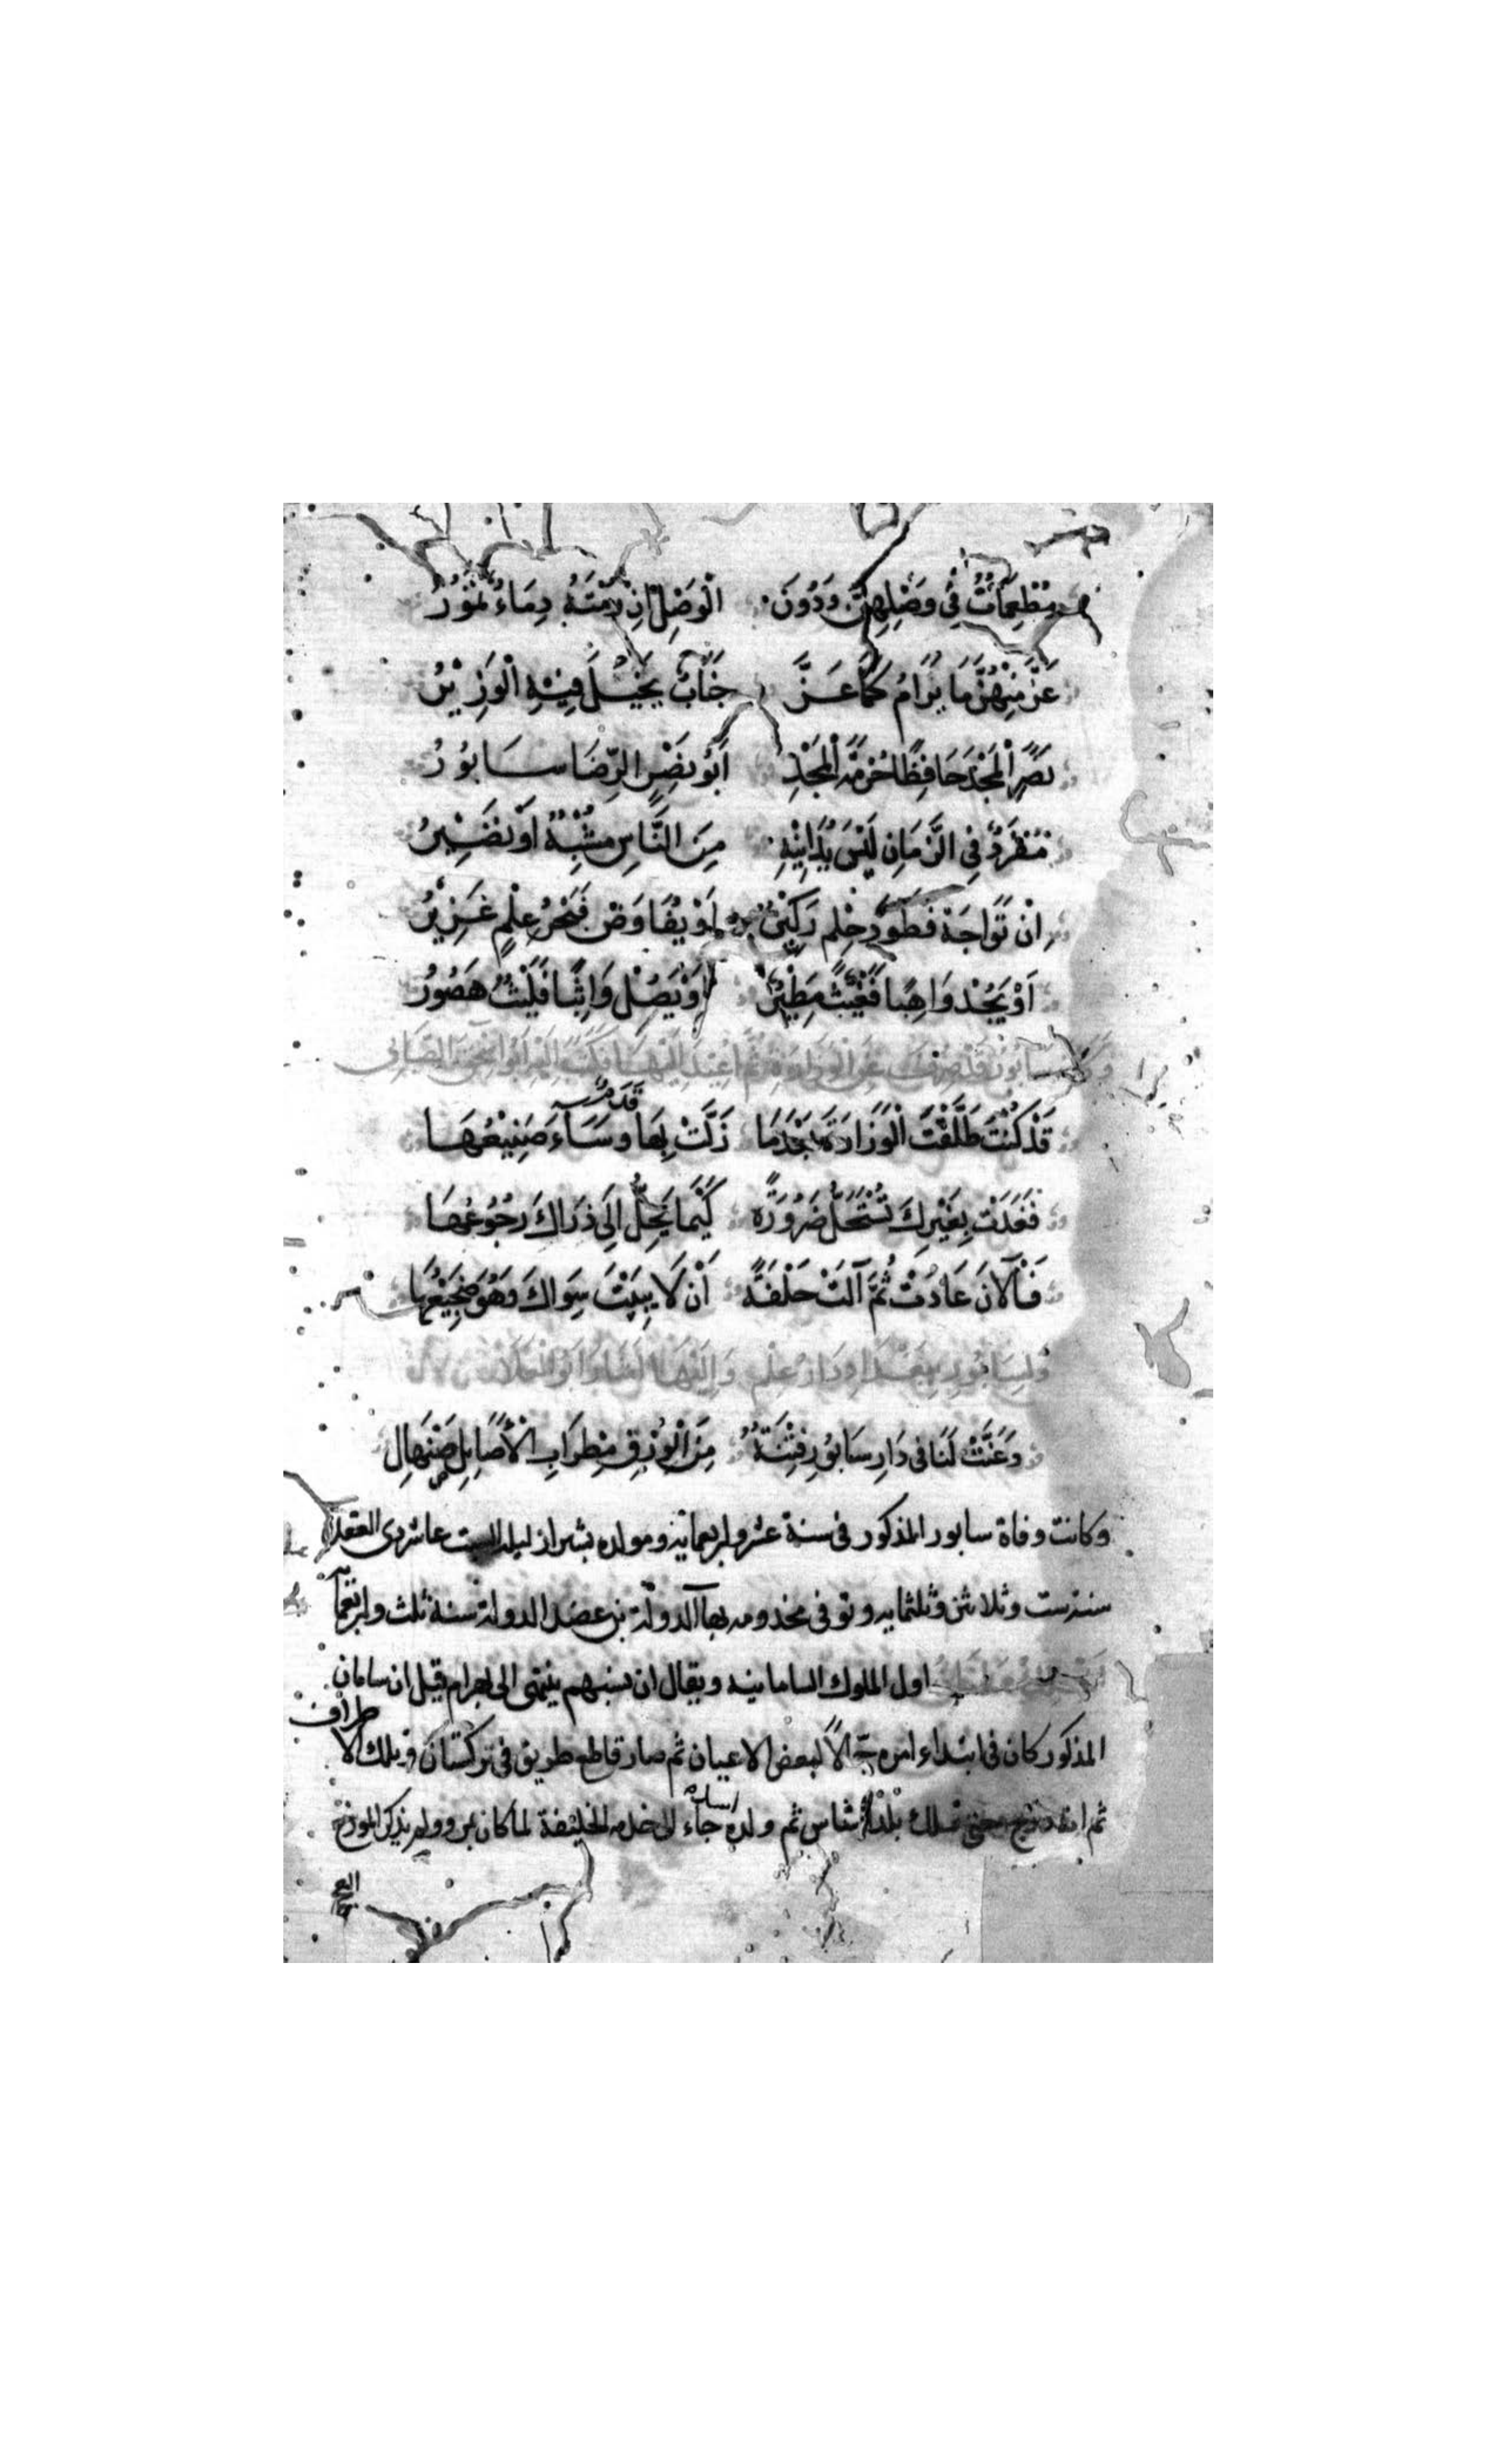 مُطْمِعَاتٌ فِي وَصْلِهِنَّ وَدُونَ الْوَصْلِ اِنْ رُمْتَهُ دِمَاءٌ تَمُوْرُ
عَزَّ مِنْهُنَّ مَا يُرَامُ كَمَا عَزَّ جَنَابٌ يَحِيْلُ فِيْهِ الْوَزِيْرُ
نَصَرَ الْمَجْدَ حَافِظًا حُرْمَةَ الْمَجْدِ اَبُوْ نَصْرٍ الرِّضَا سَابُوْرُ
مُفْرَدٌ فِي الزَّمَانِ لَيْسَ يُدَانِيْهِ مِنَ النَّاسِ مُشْبِهٌ اَوْ نَظِيْرُ
اِنْ تُوَاجَهْ فَطَوْدُ حِلْمٍ رَكِيْنٌ اَوْ يُفَاوَضْ فَبَحْرُ عِلْمٍ غَزِيْرُ
اَوْ يَجُدْ وَاهِبًا فَغَيْثٌ مَطِيْرٌ اَوْ يَصُلْ وَاثِبًا فَلَيْثٌ هَصُوْرُ
وَكَانَ سَابُوْرُ قَدْ صُرِفَ عَنِ الْوِزَارَةِ ثُمَّ اُعِيْدَ اِلَيْهَا فَكَتَبَ اِلَيْهِ اَبُوْ اِسْحٰقَ الصَّابِي
قَدْ كُنْتَ طَلَّقْتَ الْوَزَارَةَ بَعْدَمَا زَلَّتْ بِهَا قَدَمٌ وَسَاءَ صَنِيْعُهَا
فَغَدَتْ بِغَيْرِكَ تَسْتَحِلُّ ضَرُوْرَةً كَيْمَا يَحِلُّ اِلَى ذَرَاكَ رُجُوْعُهَا
فَالْآنَ عَادَتْ ثُمَّ آلَتْ حَلْفَةً اَنْ لَا يَبِيْتَ سِوَاكَ وَهُوَ ضَجِيْعُهَا
وَلِسَابُوْرِ بِبَغْدَادِ دَارُ عِلْمٍ وَاِلَيْهَا اَشَارَ اَبُو الْعَلَاءِ
وَغَنَّتْ لَنَا فِي دَارِ سَابُوْرِ قَيْنَةٌ مِنَ الْوُرْقِ مِطْرَابِ الْأَصَايِلِ مِيْهَالِ
وكانت وفاة سابور المذكور فى سنة عشر واربعماية ومولده بشيراز ليلة السبت عاشر ذى القعدة
سنة ست وثلاثين وثلثمايه وتوفى مخدومه بهاآلدولة بن عضد الدولة سنة ثلث واربعمأية
اول الملوك السامانيه ويقال ان نسبهم ينتهى الى بهرام قيل ان سامان
المذكور كان فى ابتداء امره جمّالًا لبعض الاعيان ثم صار قاطع طريق فى تركستان وتلك الاطراف
ثم انه حتى تملك بلدة شاس ثم ولده اسد جاء الى خدمه الخليفة لما كان بمرو ولم يذكر المورخ